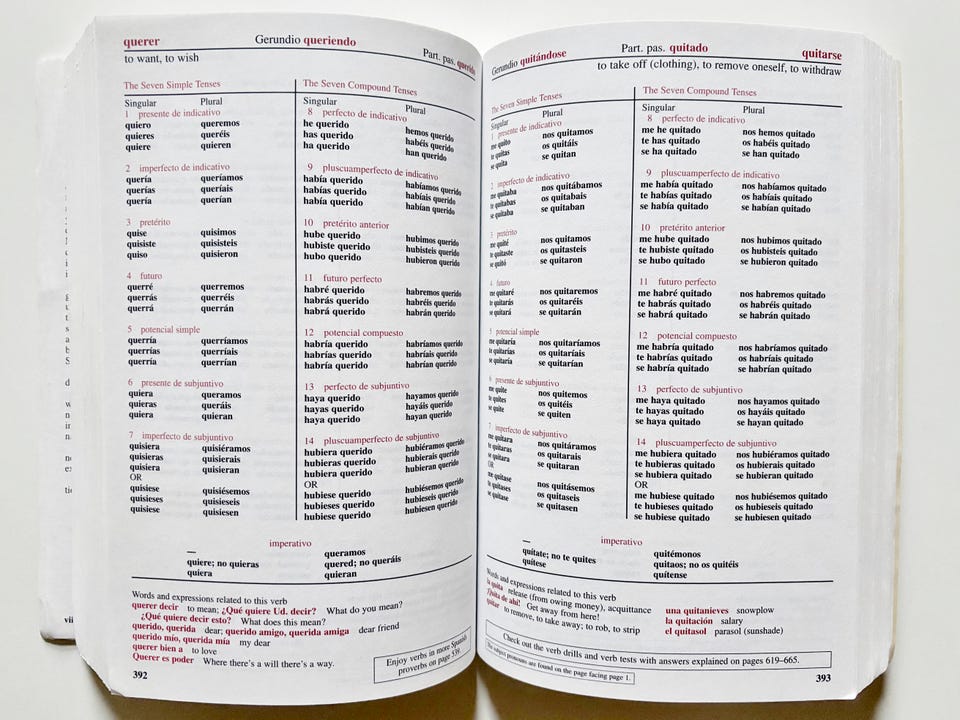 querer
Gerundio queriendo
Part. pas. querido
to want, to wish
The Seven Simple Tenses
The Seven Compound Tenses
Singular Plural
Singular Plural
1 presente de indicativo
quiero queremos
quieres queréis
quiere quieren
2 imperfecto de indicativo
quería queríamos
querías queríais
quería querían
3 pretérito
quise quisimos
quisiste quisisteis
quiso quisieron
4 futuro
querré querremos
querrás querréis
querrá querrán
5 potencial simple
querría querríamos
querrías querríais
querría querrían
6 presente de subjuntivo
quiera queramos
quieras queráis
quiera quieran
7 imperfecto de subjuntivo
quisiera quisiéramos
quisieras quisierais
quisiera quisieran
OR
quisiese quisiésemos
quisieses quisieseis
quisiese quisiesen
8 perfecto de indicativo
he querido hemos querido
has querido habéis querido
ha querido han querido
9 pluscuamperfecto de indicativo
había querido habíamos querido
habías querido habíais querido
había querido habían querido
10 pretérito anterior
hube querido hubimos querido
hubiste querido hubisteis querido
hubo querido hubieron querido
11 futuro perfecto
habré querido habremos querido
habrás querido habréis querido
habrá querido habrán querido
12 potencial compuesto
habría querido habríamos querido
habrías querido habríais querido
habría querido habrían querido
13 perfecto de subjuntivo
haya querido hayamos querido
hayas querido hayáis querido
haya querido hayan querido
14 pluscuamperfecto de subjuntivo
hubiera querido hubiéramos querido
hubieras querido hubierais querido
hubiera querido hubieran querido
OR
hubiese querido hubiésemos querido
hubieses querido hubieseis querido
hubiese querido hubiesen querido
imperativo
— queramos
quiere; no quieras quered; no queráis
quiera quieran
Words and expressions related to this verb
querer decir to mean; ¿Qué quiere Ud. decir? What do you mean?
¿Qué quiere decir esto? What does this mean?
querido, querida dear; querido amigo, querida amiga dear friend
querido mío, querida mía my dear
querer bien a to love
Querer es poder Where there's a will there's a way.
Enjoy verbs in more Spanish
proverbs on page 539.
392
Gerundio quitándose
Part. pas. quitado
quitarse
to take off (clothing), to remove oneself, to withdraw
The Seven Simple Tenses
The Seven Compound Tenses
Singular Plural
Singular Plural
1 presente de indicativo
me quito nos quitamos
te quitas os quitáis
se quita se quitan
2 imperfecto de indicativo
me quitaba nos quitábamos
te quitabas os quitabais
se quitaba se quitaban
3 pretérito
me quité nos quitamos
te quitaste os quitasteis
se quitó se quitaron
4 futuro
me quitaré nos quitaremos
te quitarás os quitaréis
se quitará se quitarán
5 potencial simple
me quitaría nos quitaríamos
te quitarías os quitaríais
se quitaría se quitarían
6 presente de subjuntivo
me quite nos quitemos
te quites os quitéis
se quite se quiten
7 imperfecto de subjuntivo
me quitara nos quitáramos
te quitaras os quitarais
se quitara se quitaran
OR
me quitase nos quitásemos
te quitases os quitaseis
se quitase se quitasen
8 perfecto de indicativo
me he quitado nos hemos quitado
te has quitado os habéis quitado
se ha quitado se han quitado
9 pluscuamperfecto de indicativo
me había quitado nos habíamos quitado
te habías quitado os habíais quitado
se había quitado se habían quitado
10 pretérito anterior
me hube quitado nos hubimos quitado
te hubiste quitado os hubisteis quitado
se hubo quitado se hubieron quitado
11 futuro perfecto
me habré quitado nos habremos quitado
te habrás quitado os habréis quitado
se habrá quitado se habrán quitado
12 potencial compuesto
me habría quitado nos habríamos quitado
te habrías quitado os habríais quitado
se habría quitado se habrían quitado
13 perfecto de subjuntivo
me haya quitado nos hayamos quitado
te hayas quitado os hayáis quitado
se haya quitado se hayan quitado
14 pluscuamperfecto de subjuntivo
me hubiera quitado nos hubiéramos quitado
te hubieras quitado os hubierais quitado
se hubiera quitado se hubieran quitado
OR
me hubiese quitado nos hubiésemos quitado
te hubieses quitado os hubieseis quitado
se hubiese quitado se hubiesen quitado
imperativo
— quitémonos
quítate; no te quites quitaos; no os quitéis
quítese quítense
Words and expressions related to this verb
la quita release (from owing money), acquittance
¡Quita de ahí! Get away from here!
quitar to remove, to take away; to rob, to strip
una quitanieves snowplow
la quitación salary
el quitasol parasol (sunshade)
Check out the verb drills and verb tests with answers explained on pages 619–665.
The subject pronouns are found on the page facing page 1.
393
vii